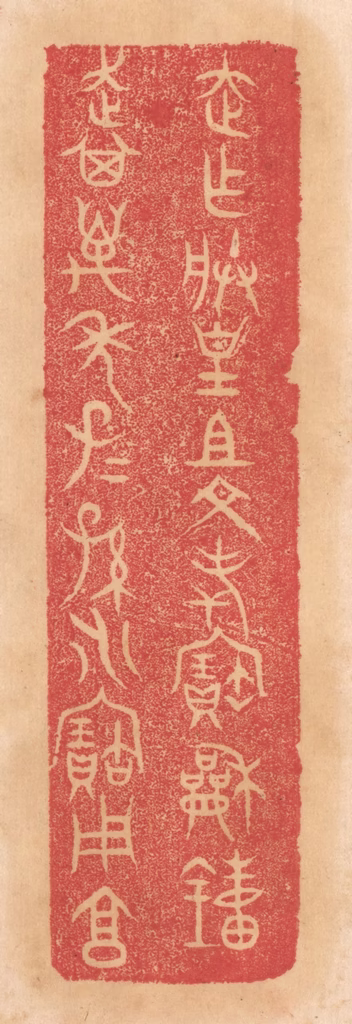 走乍朕皇且文考寶龢鐘
走其萬年子〻孫〻永寶用亯